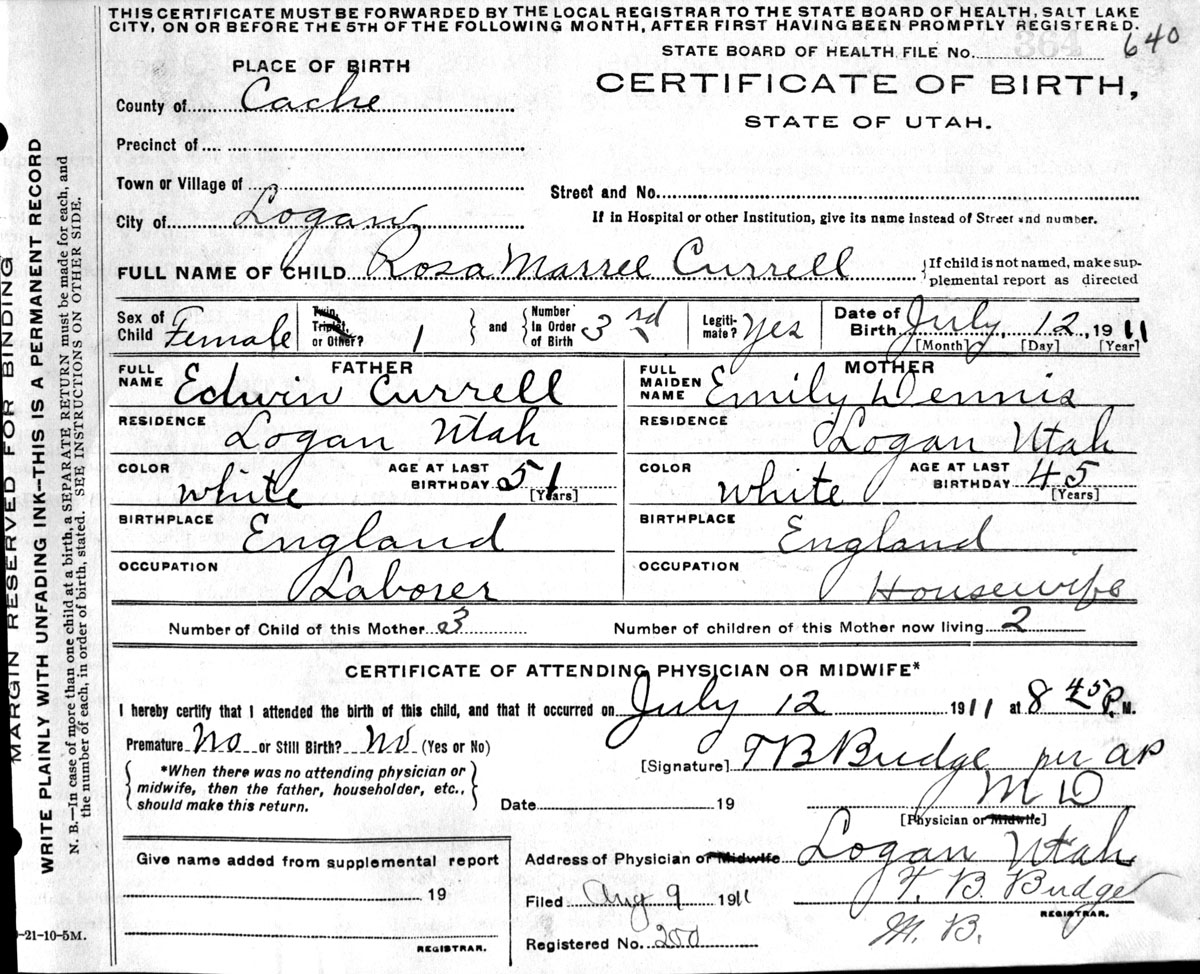 THIS CERTIFICATE MUST BE FORWARDED BY THE LOCAL REGISTRAR TO THE STATE BOARD OF HEALTH, SALT LAKE
CITY, ON OR BEFORE THE 5TH OF THE FOLLOWING MONTH, AFTER FIRST HAVING BEEN PROMPTLY REGISTERED.
STATE BOARD OF HEALTH FILE No. 364 640
PLACE OF BIRTH
CERTIFICATE OF BIRTH,
STATE OF UTAH.
County of Cache
Precinct of
Town or Village of
Street and No.
City of Logan
If in Hospital or other Institution, give its name instead of Street and number.
FULL NAME OF CHILD Rosa Marrel Currell
{If child is not named, make sup-
plemental report as directed
Sex of Child Female
Twin, Triplet, or Other? 1 } and { Number in Order of Birth 3rd
Legiti-mate? Yes
Date of Birth July 12, 1911
[Month] [Day] [Year]
FATHER
FULL NAME Edwin Currell
RESIDENCE Logan Utah
COLOR white AGE AT LAST BIRTHDAY 51 [Years]
BIRTHPLACE England
OCCUPATION Laborer
MOTHER
FULL MAIDEN NAME Emily Dennis
RESIDENCE Logan Utah
COLOR white AGE AT LAST BIRTHDAY 45 [Years]
BIRTHPLACE England
OCCUPATION Housewife
Number of Child of this Mother 3 Number of children of this Mother now living 2
CERTIFICATE OF ATTENDING PHYSICIAN OR MIDWIFE*
I hereby certify that I attended the birth of this child, and that it occurred on July 12 1911 at 8 45 P. M.
Premature No or Still Birth? No (Yes or No)
{ *When there was no attending physician or
midwife, then the father, householder, etc.,
should make this return. }
[Signature] T B Budge per AP
M D
Date 19
[Physician or Midwife]
Give name added from supplemental report
19
REGISTRAR.
Address of Physician or Midwife Logan Utah
Filed Aug 9 1911 T. B. Budge
REGISTRAR.
M. B.
Registered No. 200
MARGIN RESERVED FOR BINDING
WRITE PLAINLY WITH UNFADING INK--THIS IS A PERMANENT RECORD
N. B.—In case of more than one child at a birth, a SEPARATE RETURN must be made for each, and
the number of each, in order of birth, stated. SEE INSTRUCTIONS ON OTHER SIDE.
-21-10-5M.